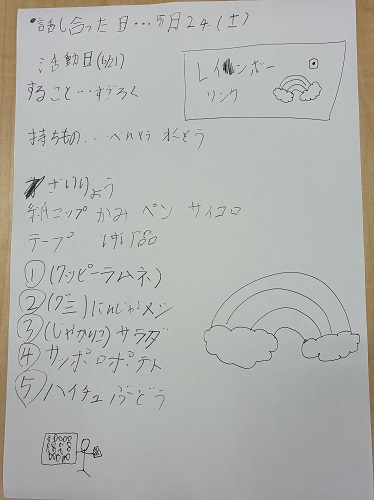 話し合った日…5月24(土)
レインボー
リンク
活動日(6/21)
すること…すごろく
持ちもの…べんとう 水とう
ざいりょう
紙コップ かみ ペン サイコロ
テープ けい品
①(クッピーラムネ)
②(グミ)にんじゃメシ
③(じゃがりこ)サラダ
④サッポロポテト
⑤ハイチュぶどう